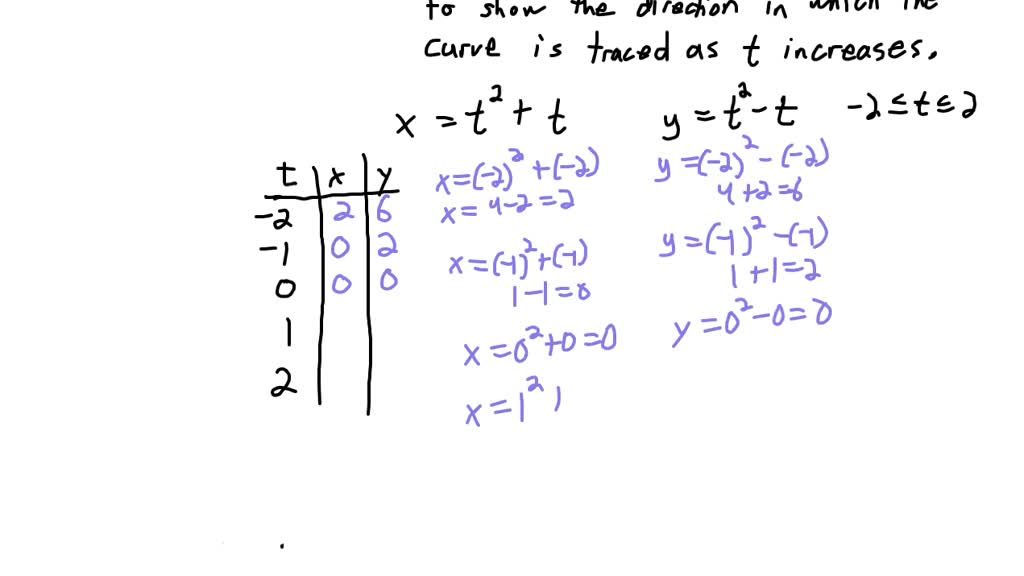 to show the direction in which the
curve is traced as t increases.
x = t² + t y = t² - t -2 ≤ t ≤ 2
t x y
-2 2 6
-1 0 2
0 0 0
1
2
x = (-2)² + (-2)
x = 4 - 2 = 2
x = (-1)² + (-1)
1 - 1 = 0
x = 0² + 0 = 0
x = 1²
y = (-2)² - (-2)
4 + 2 = 6
y = (-1)² - (-1)
1 + 1 = 2
y = 0² - 0 = 0